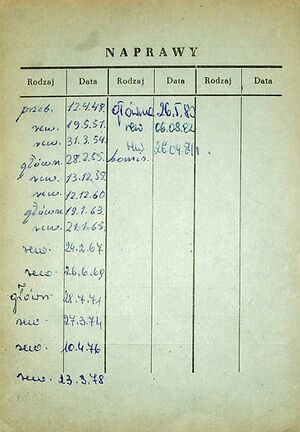 NAPRAWY
Rodzaj Data Rodzaj Data Rodzaj Data
przeb. 12.4.48. główna 26.V.80
rew. 19.5.51. rew 06.09.82
rew. 31.3.54. rew 26.04.84r
główn. 28.2.55.
rew. 13.12.58.
rew. 12.12.60
główn. 19.1.63.
rew. 21.1.65.
rew. 24.2.67.
rew. 26.6.69
główn 28.7.71
rew. 27.3.74
rew. 10.4.76
rew. 23.3.78